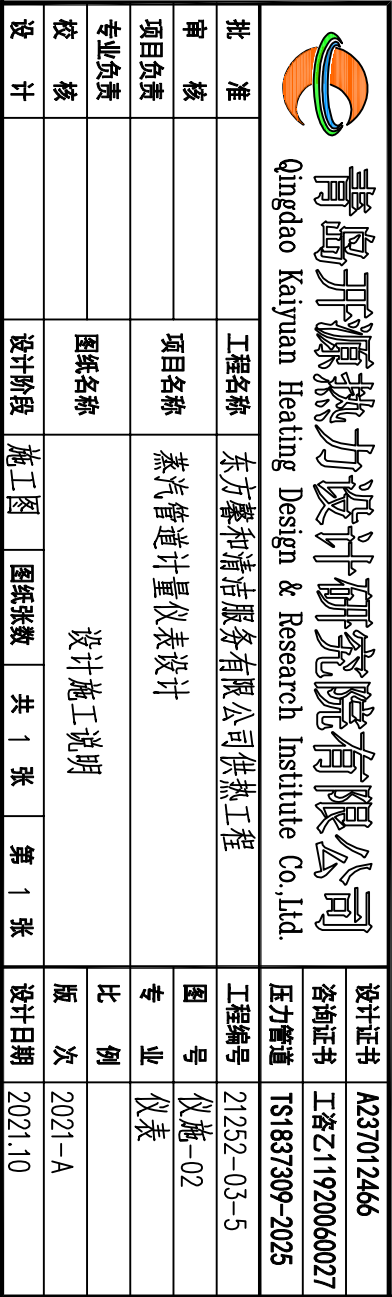 青岛开源热力设计研究院有限公司
Qingdao Kaiyuan Heating Design & Research Institute Co.,Ltd.
设计证书 A237012466
咨询证书 工咨乙11920060027
压力管道 TS1837309-2025
批 准 工程名称 东方馨和清洁服务有限公司供热工程 工程编号 21252-03-5
审 核 图 号 仪施-02
项目负责 项目名称 蒸汽管道计量仪表设计 专 业 仪表
专业负责 比 例
校 核 图纸名称 设计施工说明 版 次 2021-A
设 计 设计阶段 施工图 图纸张数 共 1 张 第 1 张 设计日期 2021.10